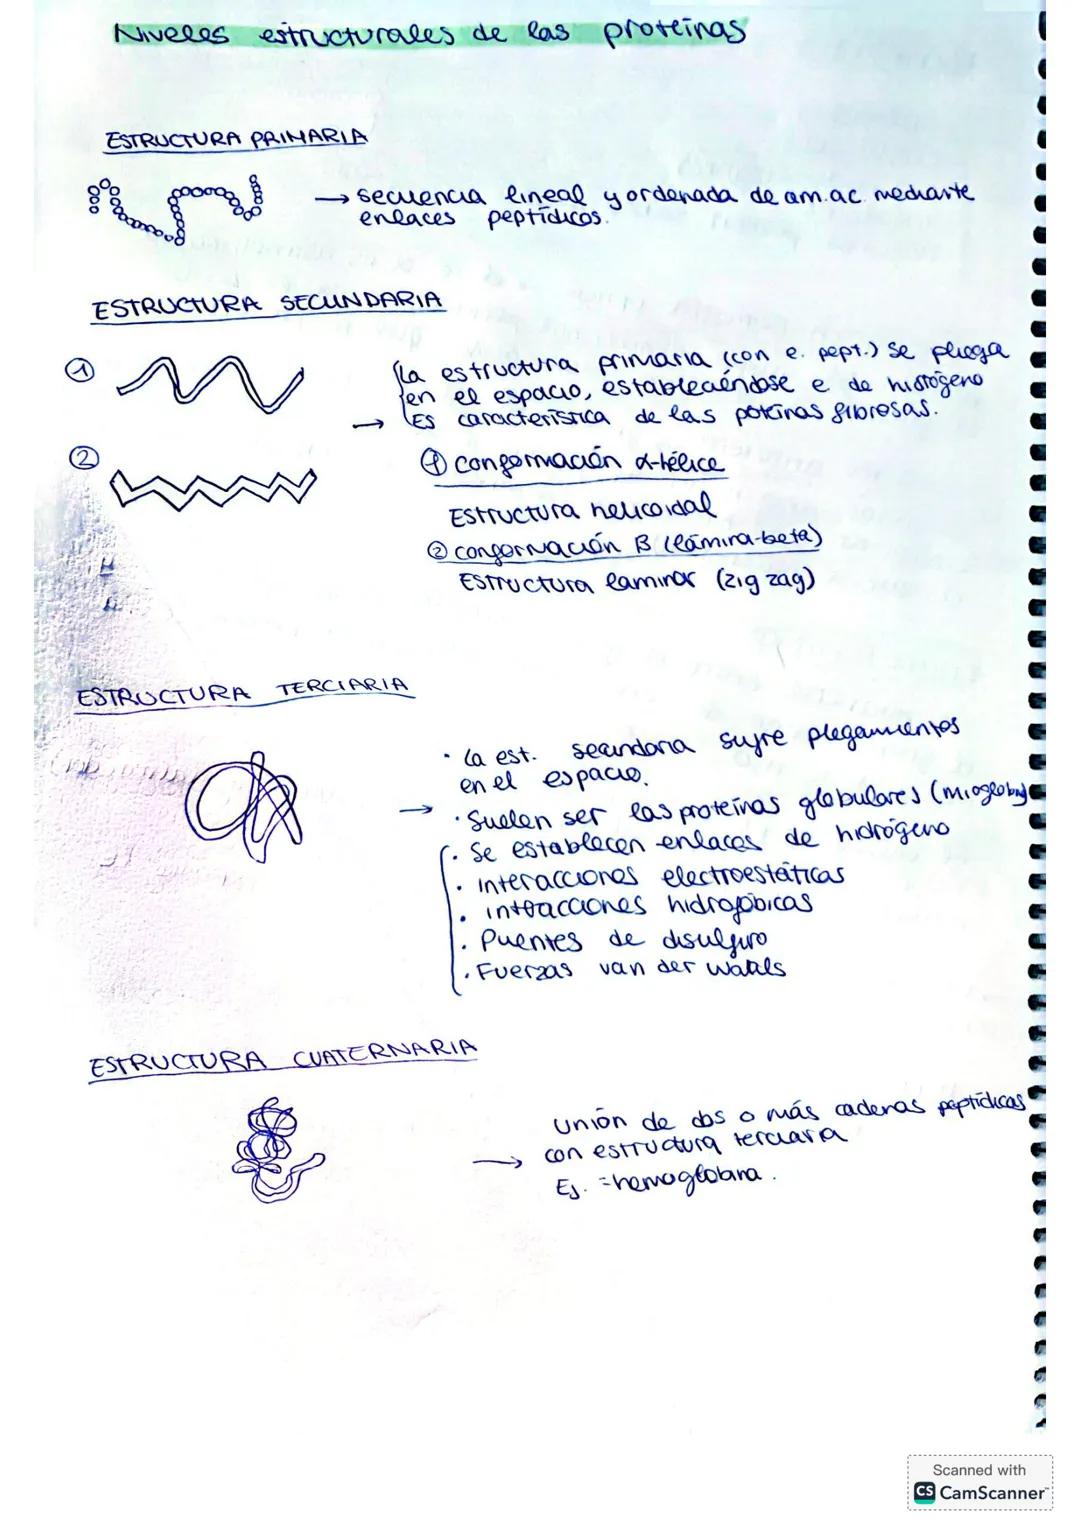 Niveles estructurales de las proteínas
ESTRUCTURA PRIMARIA
→ secuencia lineal y ordenada de am.ac. mediante
enlaces peptídicos.
ESTRUCTURA SECUNDARIA
①
②
La estructura primaria (con e. pept.) se pliega
en el espacio, estableciéndose e de hidrógeno
→ Es característica de las proteínas fibrosas.
① conformación α-hélice
Estructura helicoidal
② conformación B (lámina-beta)
Estructura laminar (zig zag)
ESTRUCTURA TERCIARIA
· La est. secundaria sufre plegamientos
en el espacio.
→
· Suelen ser las proteínas globulares (mioglobin
· Se establecen enlaces de hidrógeno
· interacciones electroestáticas
· intracciones hidrofóbicas
· Puentes de disulfuro
· Fuerzas van der waals
ESTRUCTURA CUATERNARIA
Unión de dos o más cadenas peptídicas
→ con estructura terciaria
Ej. = hemoglobina.
Scanned with
CS CamScanner